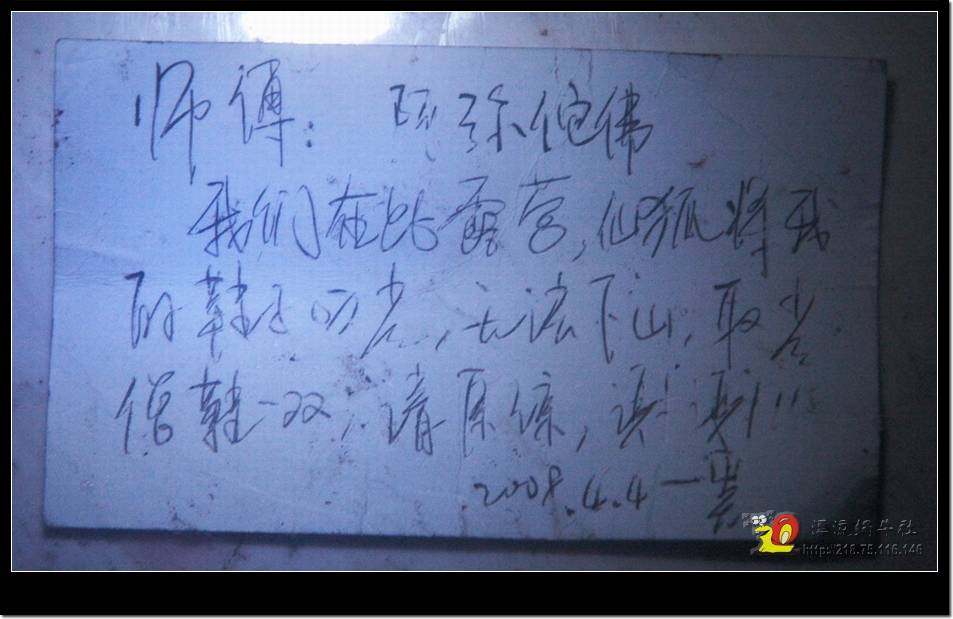 师傅： 阿弥陀佛
我们在此露营，仙狐将我
的鞋叼去，无法下山，取
僧鞋一双，请原谅，谢谢！！！
2008.4.4一
蜗牛社
http://218.75.116.146